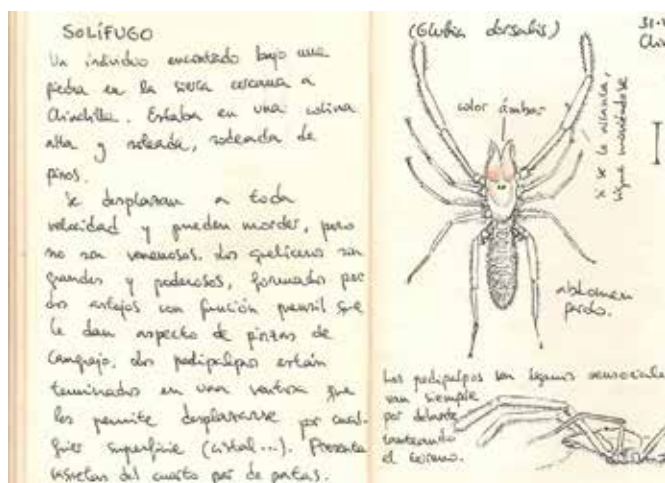 SOLÍFUGO
Un individuo encontrado bajo una
piedra en la sierra cercana a
Chinchilla. Estaba en una colina
alta y soleada, rodeada de
pinos.
Se desplazan a toda
velocidad y pueden morder, pero
no son venenosos. Los quelíceros son
grandes y poderosos, formados por
dos artejos con función prensil que
le dan aspecto de pinzas de
cangrejo. Los pedipalpos están
terminados en una ventosa que
les permite desplazarse por cual-
quier superficie (cristal...). Presenta
del cuarto par de patas.
(Gluvia dorsalis)
31-
Chin
color ámbar
x se le
sigue moviéndose
abdomen
pardo.
Los pedipalpos son órganos sensoriales
van siempre
por delante
tanteando
el